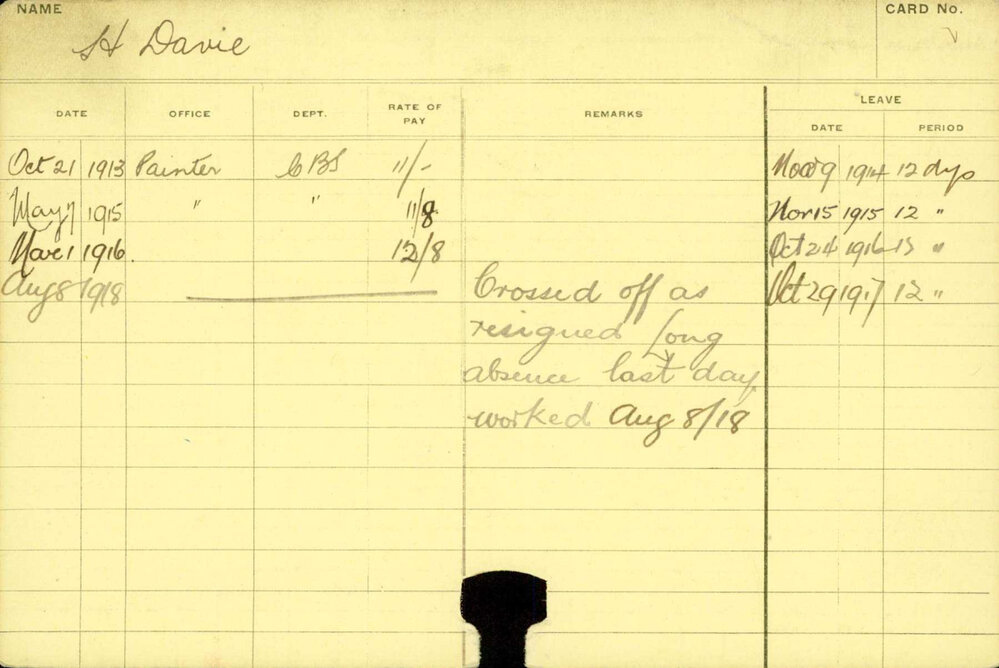 NAME CARD No.
H Davie
LEAVE
DATE OFFICE DEPT. RATE OF PAY REMARKS DATE PERIOD
Oct 21 1913 Painter CBS 11/- 9 1914 12 dys
May 7 1915 " " 11/8 Nov 15 1915 12 "
Mar 1 1916. 12/8 Oct 24 1916 13 "
Aug 8 1918 Crossed off as Oct 29 1917 12 "
resigned long
absence last day
worked Aug 8/18